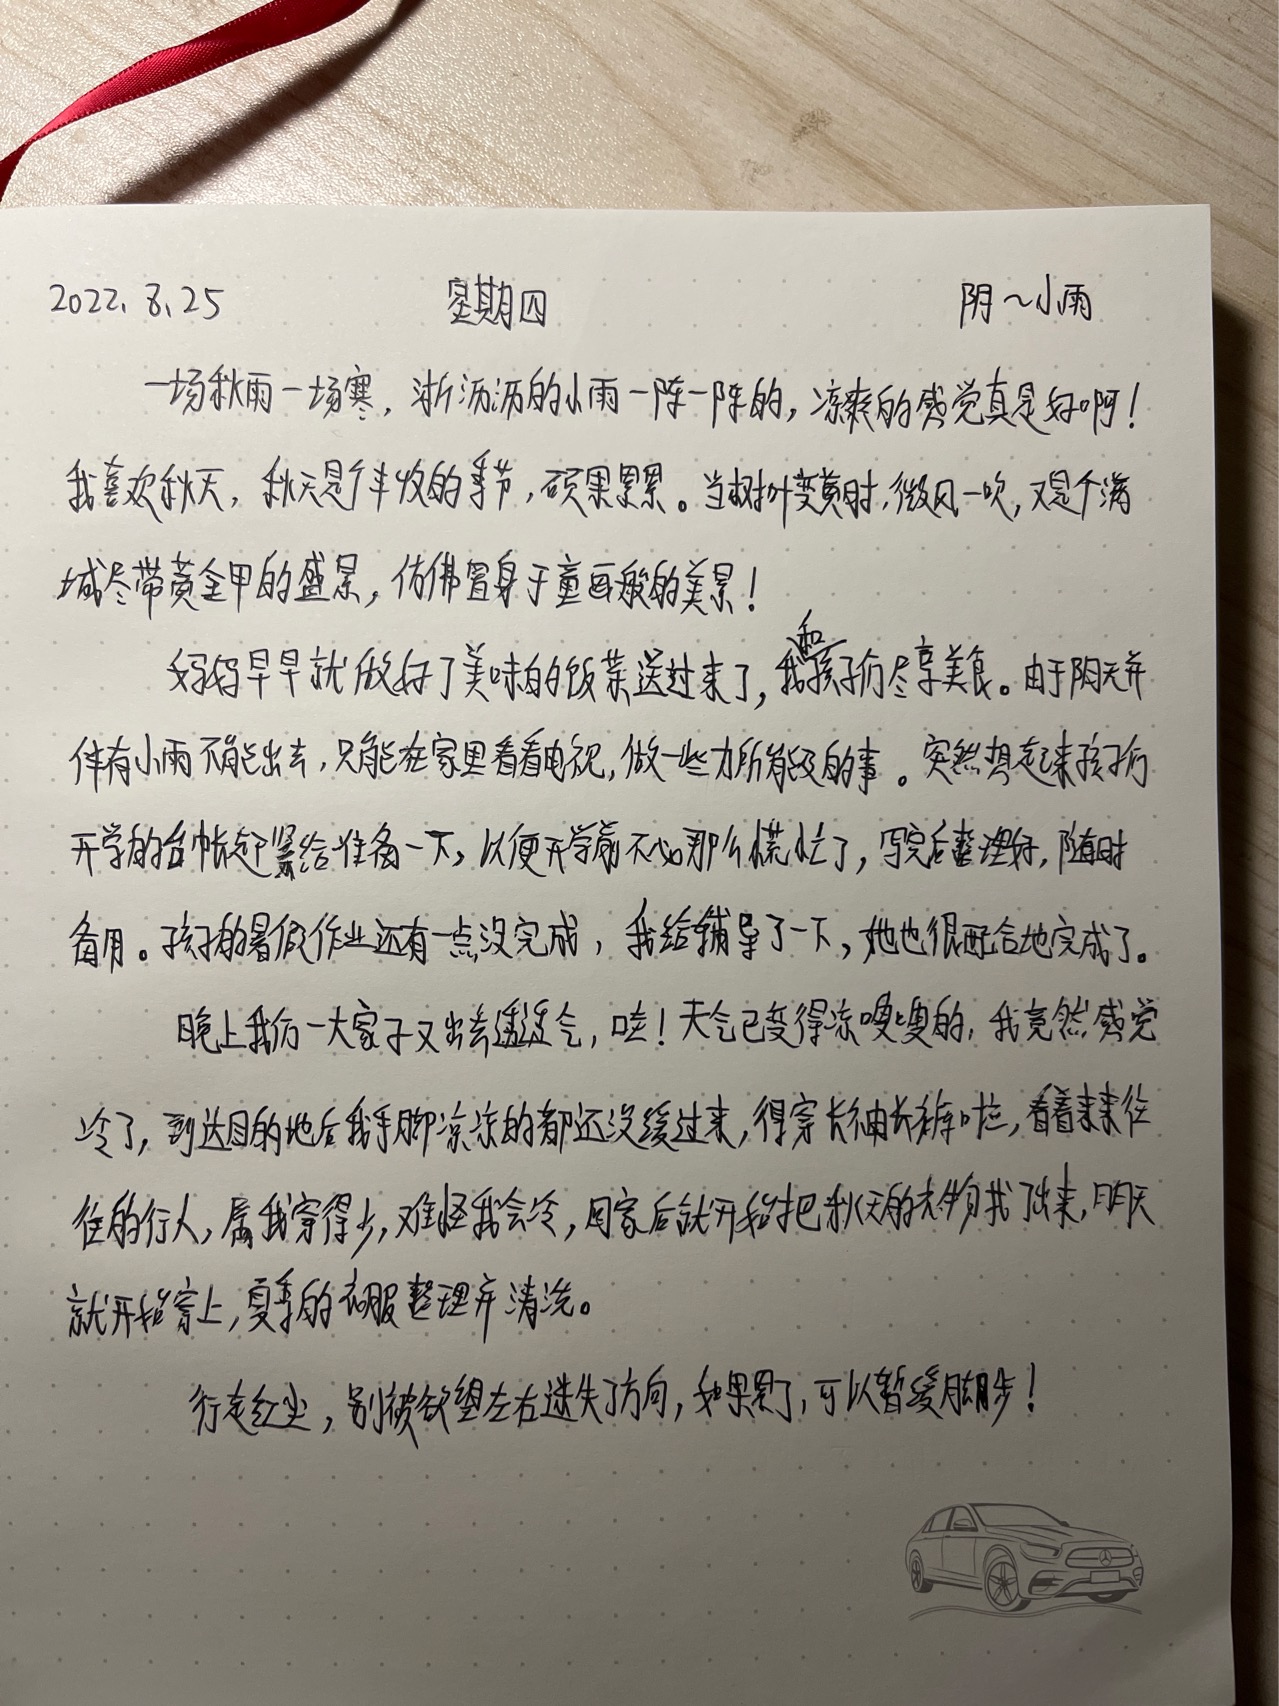 2022.8.25 星期四 阴~小雨
一场秋雨一场寒,淅沥沥的小雨一阵一阵的,凉爽的感觉真是好啊!
我喜欢秋天,秋天是个丰收的季节,硕果累累。当树叶变黄时,微风一吹,又是个满
城尽带黄金甲的盛景,仿佛置身于童画般的美景!
妈妈早早就做好了美味的饭菜送过来了,我和孩子们尽享美食。由于阴天并
伴有小雨不能出去,只能在家里看看电视,做一些力所能及的事。突然想起来孩子们
开学的台帐赶紧给准备一下,以便开学前不必那么慌忙了,写完后整理好,随时
备用。孩子的暑假作业还有一点没完成,我给辅导了一下,她也很配合地完成了。
晚上我们一大家子又出去透透气,哇!天气已变得凉嗖嗖的,我竟然感觉
冷了,到达目的地后我手脚凉凉的都还没缓过来,得穿长袖长裤啦,看着来来往
往的行人,属我穿得少,难怪我会冷,回家后就开始把秋天的衣物找了出来,明天
就开始穿上,夏季的衣服整理并清洗。
行走红尘,别被欲望左右迷失了方向,如果累了,可以暂缓脚步!